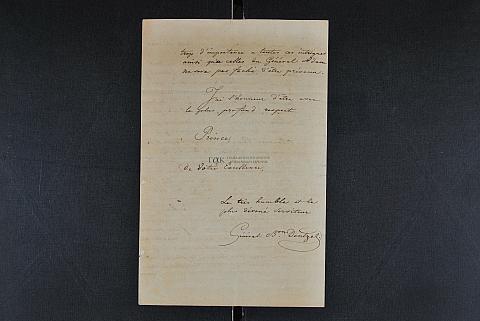 trop d'importance a toutes ces intrigues
ainsi qu'a celles du Général Adam
ne sera pas faché d'être prévenu.
J'ai l'honneur d'être avec
le plus profond respect
Prince,
ΓΑΚ
de Vôtre Excellence,
Le très humble et le
plus dévoué serviteur
Général Bon Dentzel